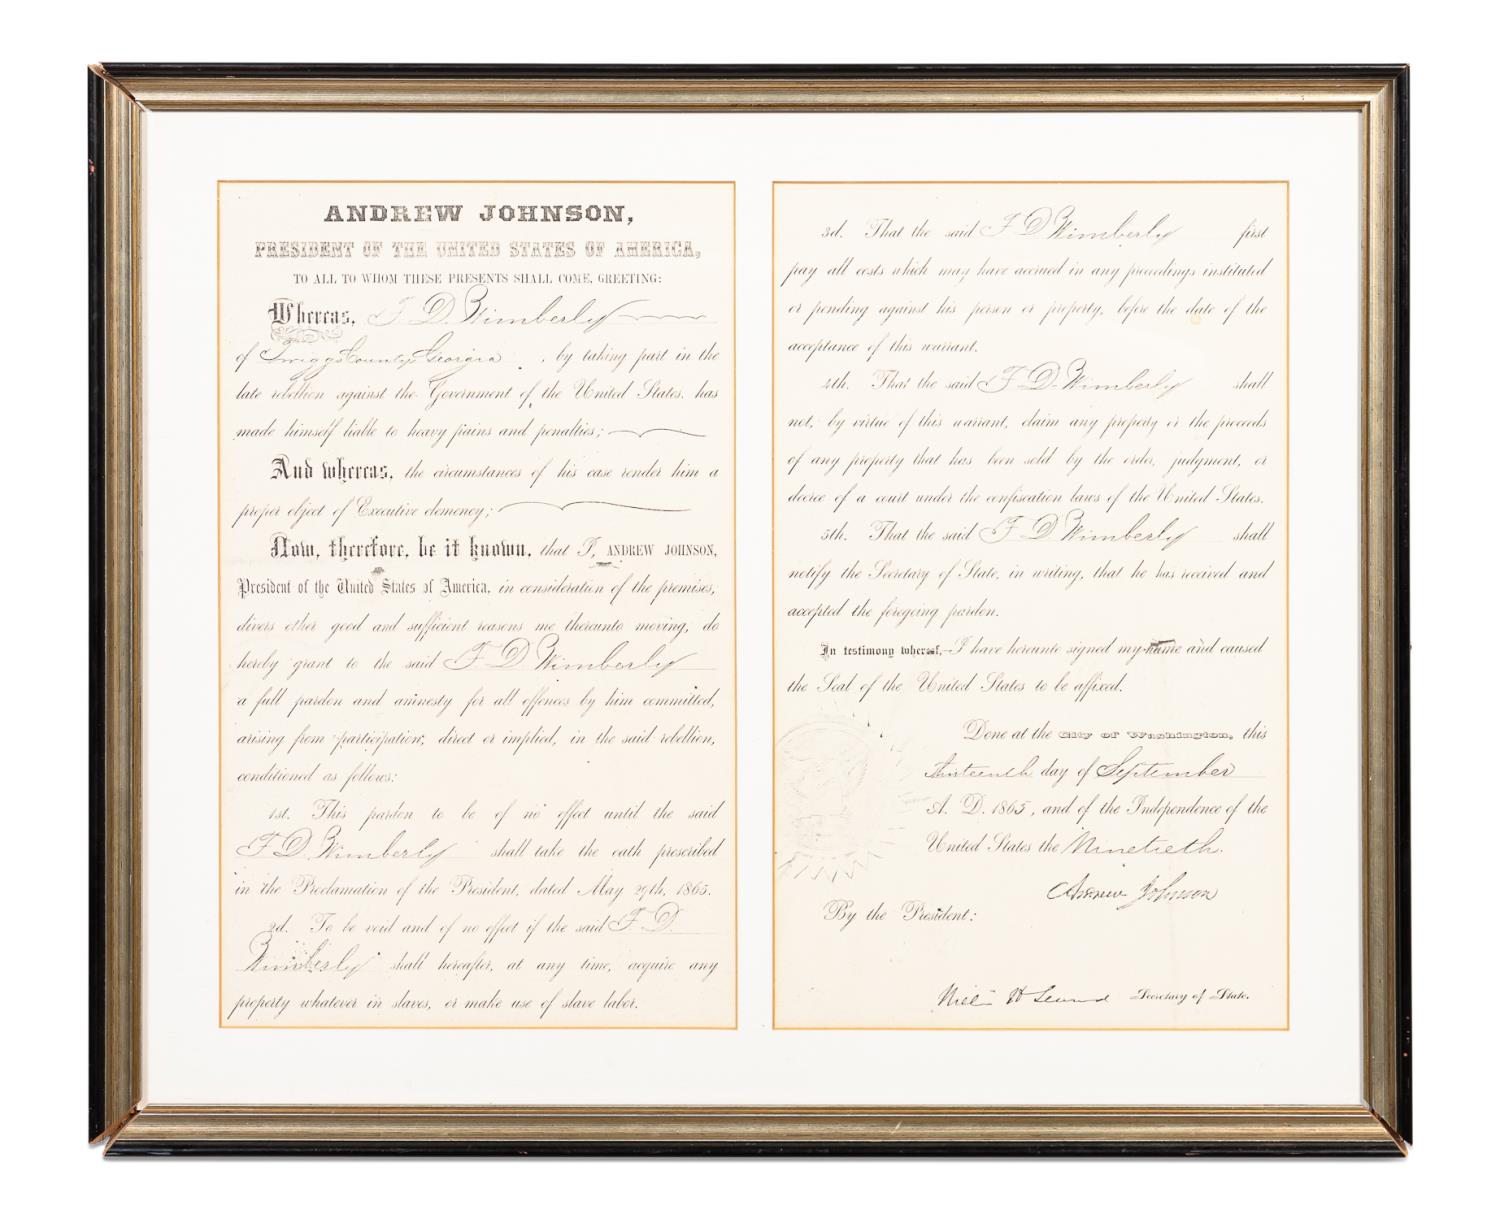 ANDREW JOHNSON,
PRESIDENT OF THE UNITED STATES OF AMERICA,
TO ALL TO WHOM THESE PRESENTS SHALL COME, GREETING:
Whereas, F. D. Wimberly
of Twiggs County, Georgia, by taking part in the
late rebellion against the Government of the United States, has
made himself liable to heavy pains and penalties;
And whereas, the circumstances of his case render him a
proper object of Executive clemency;
Now, therefore, be it known, that I, ANDREW JOHNSON,
President of the United States of America, in consideration of the premises,
divers other good and sufficient reasons me thereunto moving, do
hereby grant to the said F. D. Wimberly
a full pardon and amnesty for all offences by him committed,
arising from participation, direct or implied, in the said rebellion,
conditioned as follows:
1st. This pardon to be of no effect until the said
F. D. Wimberly shall take the oath prescribed
in the Proclamation of the President, dated May 29th, 1865.
2d. To be void and of no effect if the said F. D.
Wimberly shall hereafter, at any time, acquire any
property whatever in slaves, or make use of slave labor.
3d. That the said F. D. Wimberly first
pay all costs which may have accrued in any proceedings instituted
or pending against his person or property, before the date of the
acceptance of this warrant.
4th. That the said F. D. Wimberly shall
not, by virtue of this warrant, claim any property or the proceeds
of any property that has been sold by the order, judgment, or
decree of a court under the confiscation laws of the United States.
5th. That the said F. D. Wimberly shall
notify the Secretary of State, in writing, that he has received and
accepted the foregoing pardon.
In testimony whereof, I have hereunto signed my name and caused
the Seal of the United States to be affixed.
Done at the City of Washington, this
Thirteenth day of September
A. D. 1865, and of the Independence of the
United States the Ninetieth.
Andrew Johnson
By the President:
William H Seward Secretary of State.